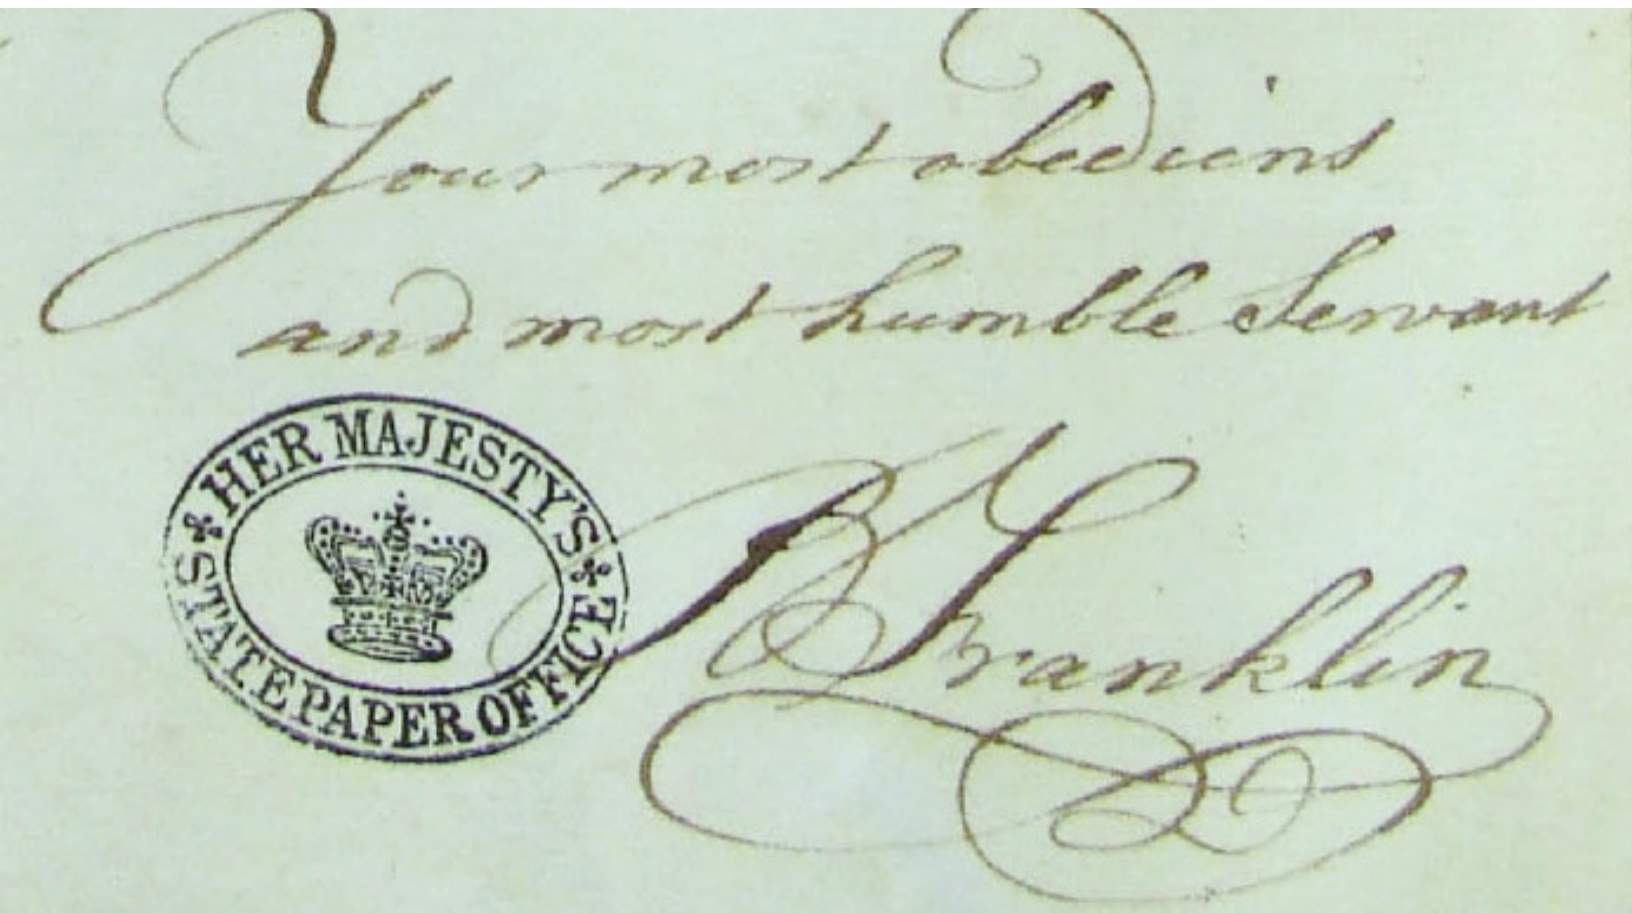 Your most obedient
and most humble Servant
HER MAJESTY'S
STATE PAPER OFFICE
B Franklin